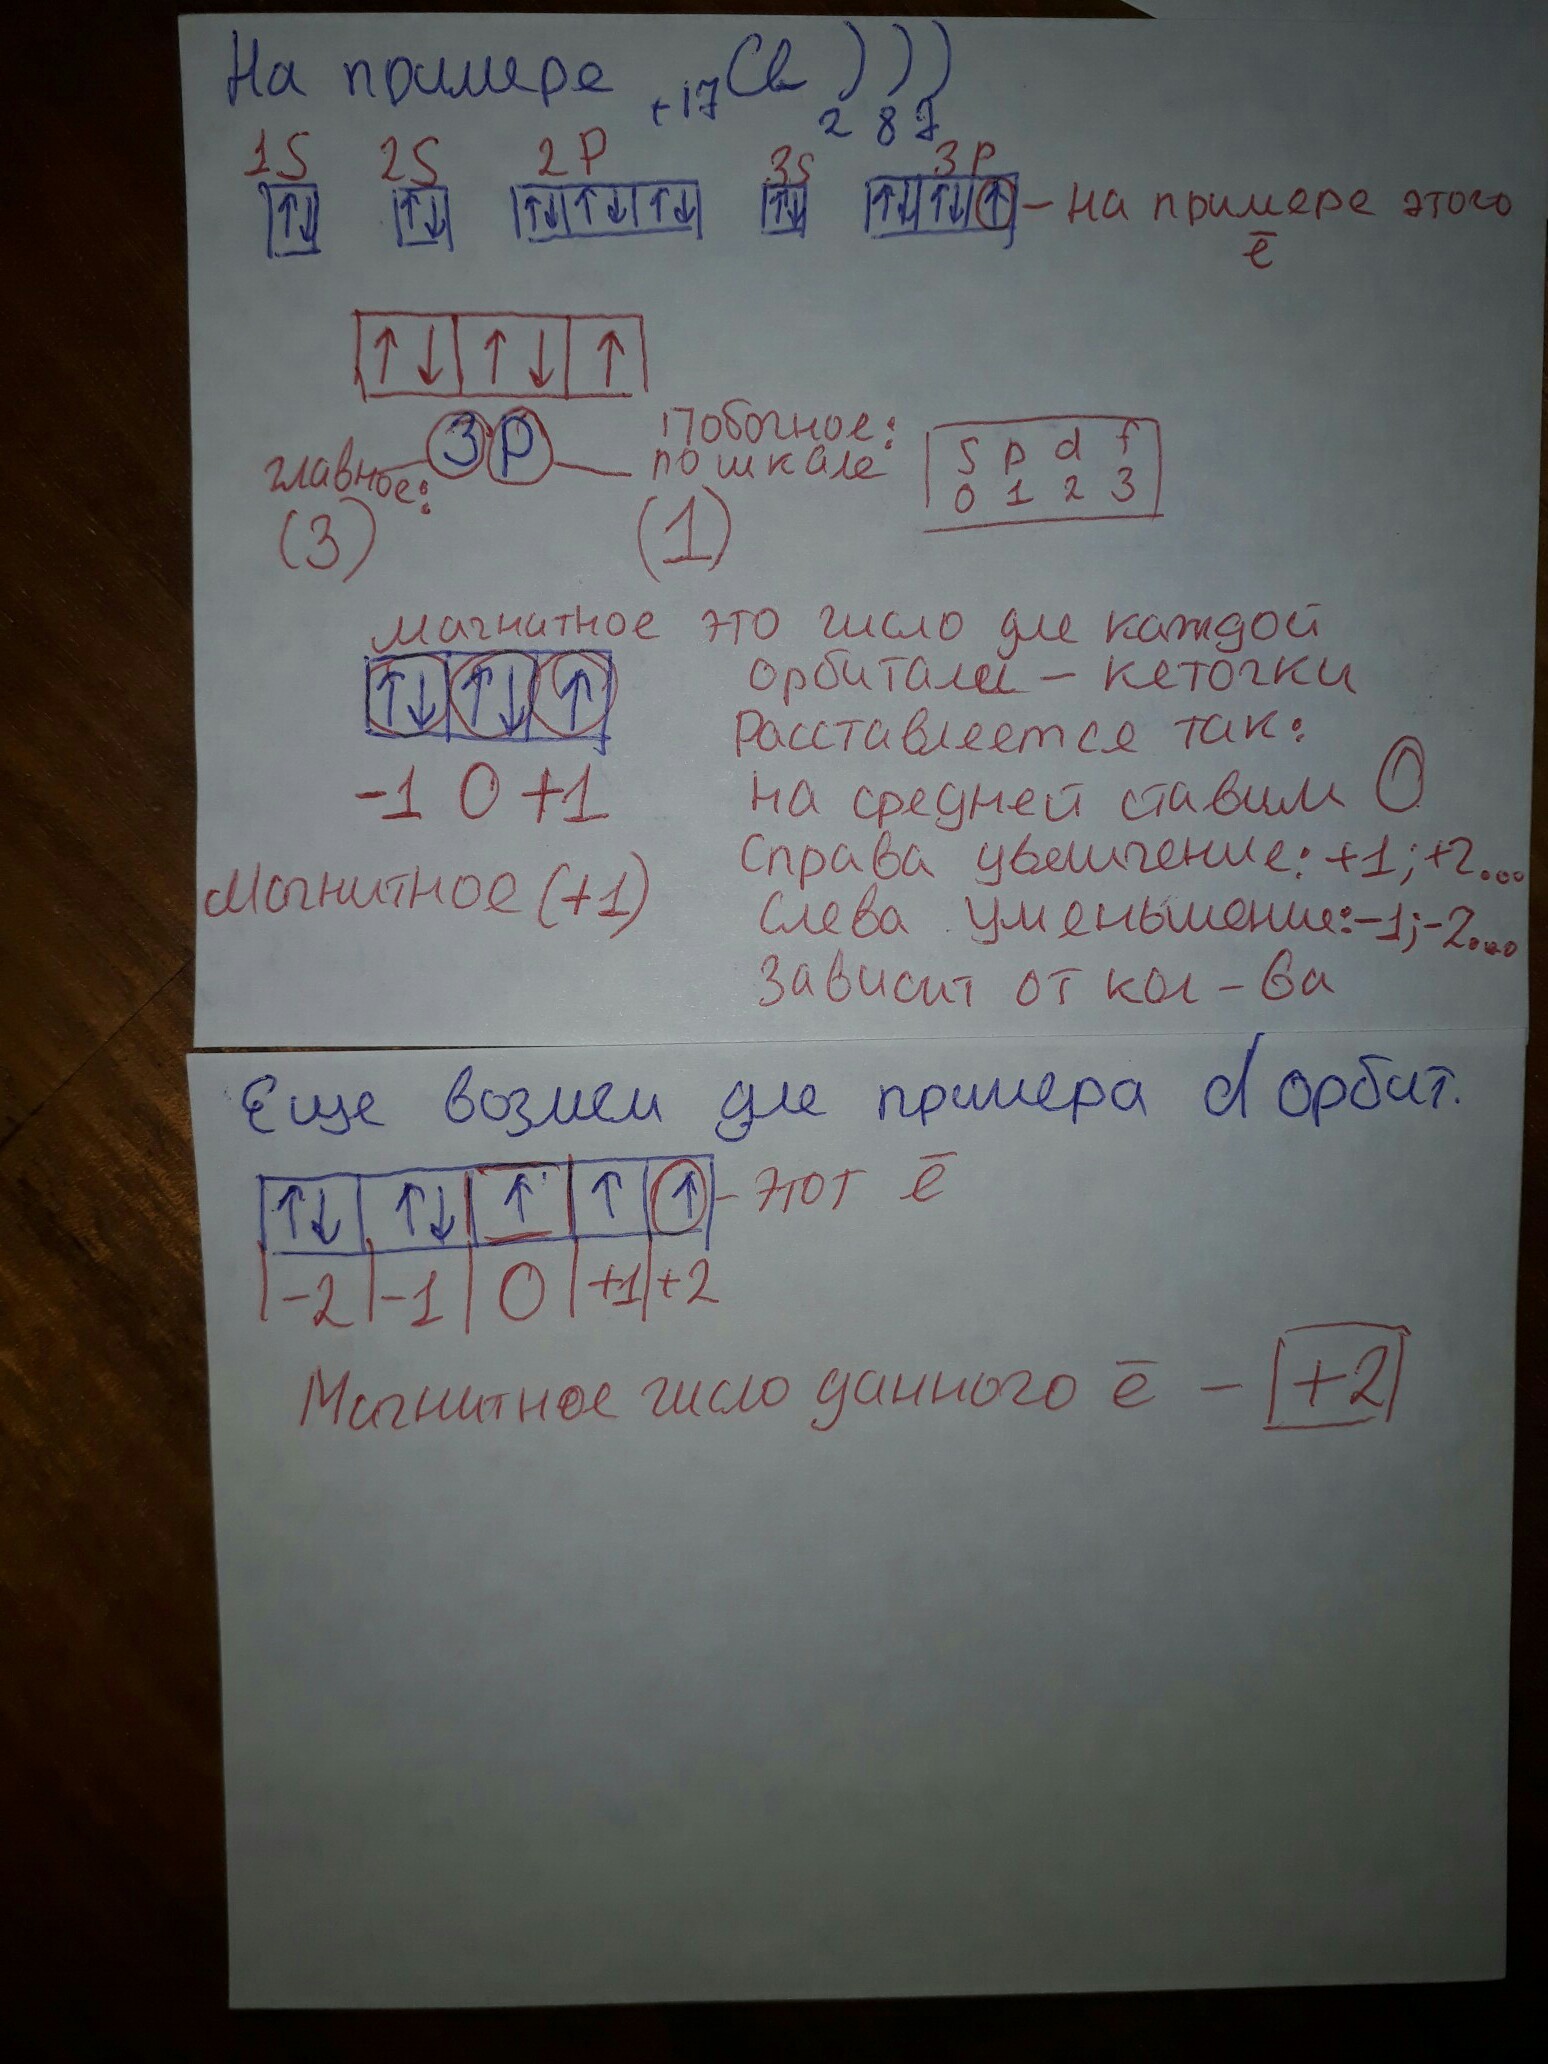 На примере +17Cl ) ) )
2 8 7
1S 2S 2P 3S 3P
↑↓ ↑↓ ↑↓ ↑↓ ↑↓ ↑↓ ↑↓ ↑↓ ↑ – на примере этого
ē
↑↓ ↑↓ ↑
3p
главное:
(3)
Побочное:
по шкале
(1)
s p d f
0 1 2 3
Магнитное это число для каждой
орбитали – кеточки
↑↓ ↑↓ ↑
Расставляется так:
-1 0 +1
на средней ставим 0
Справа увеличение: +1; +2...
Магнитное (+1)
Слева уменьшение: -1; -2...
Зависит от кол-ва
Еще возмем для примера d орбит.
↑↓ ↑↓ ↑ ↑ ↑ – этот ē
-2 -1 0 +1 +2
Магнитное число данного ē – +2